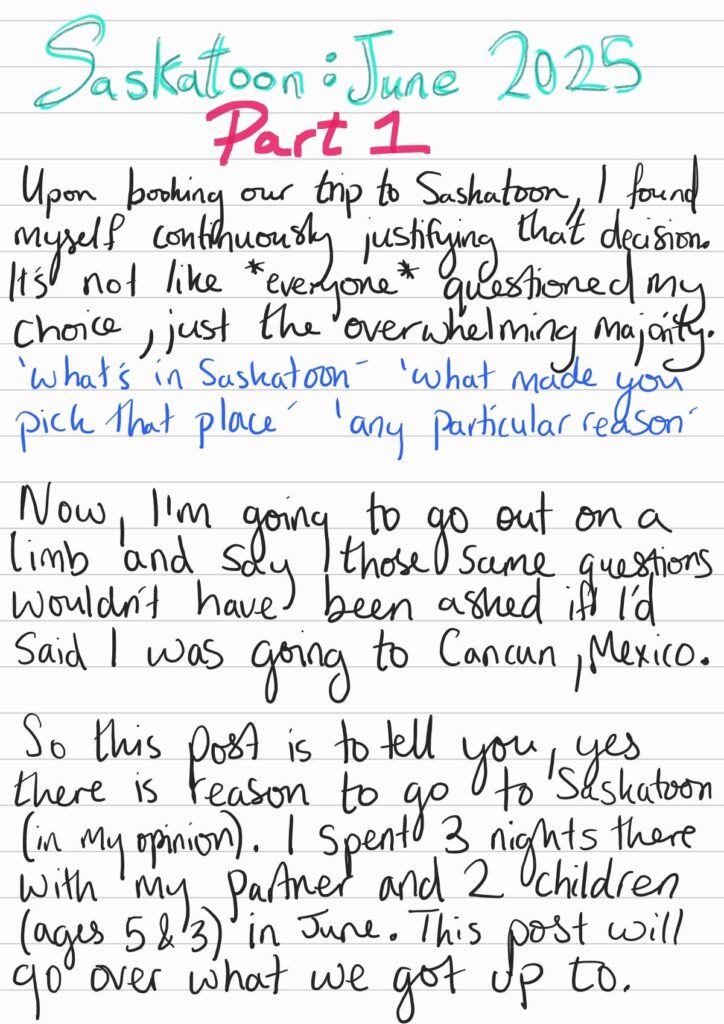 Saskatoon: June 2025
Part 1
Upon booking our trip to Saskatoon, I found
myself continuously justifying that decision.
It's not like *everyone* questioned my
choice, just the overwhelming majority.
'what's in Saskatoon' 'what made you
pick that place' 'any particular reason'
Now, I'm going to go out on a
limb and say those same questions
wouldn't have been asked if I'd
said I was going to Cancun, Mexico.
So this post is to tell you, yes
there is reason to go to Saskatoon
(in my opinion). I spent 3 nights there
with my partner and 2 children
(ages 5 & 3) in June. This post will
go over what we got up to.